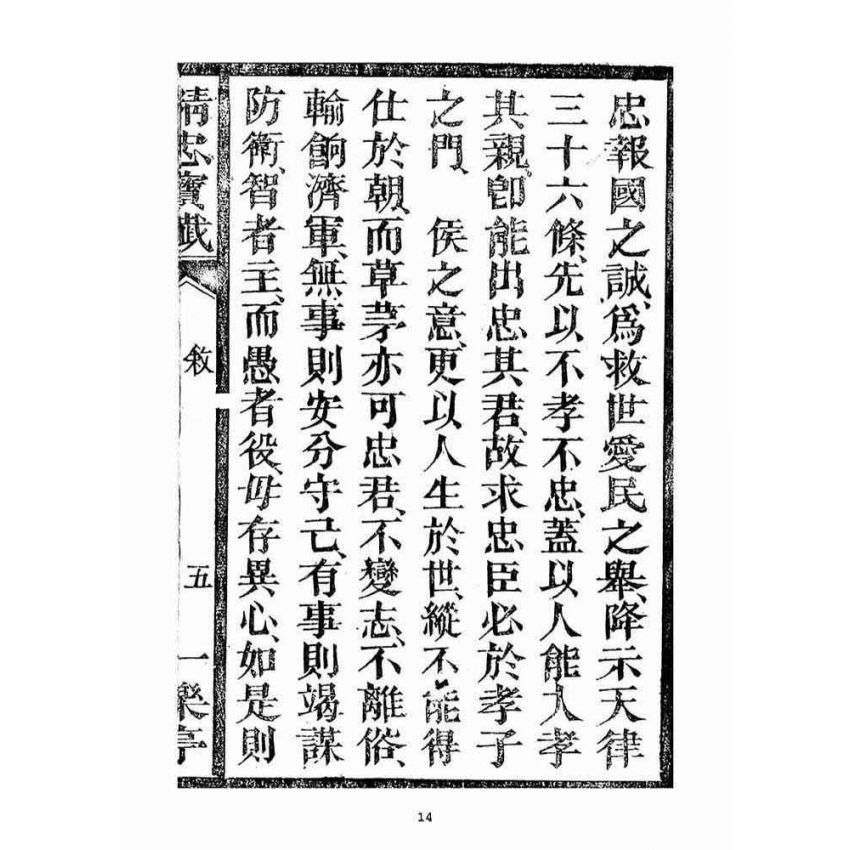 忠報國之誠、爲救世愛民之舉、降示天律
三十六條、先以不孝不忠、蓋以人能入孝
其親、卽能出忠其君、故求忠臣必於孝子
之門、　侯之意、更以人生於世、縱不能得
仕於朝、而草茅亦可忠君、不變志、不離俗、
輸餉濟軍、無事則安分守己、有事則竭謀
防衛、智者主、而愚者役、毋存異心、如是則
精忠寶誡
敘
五
一樂亭
14